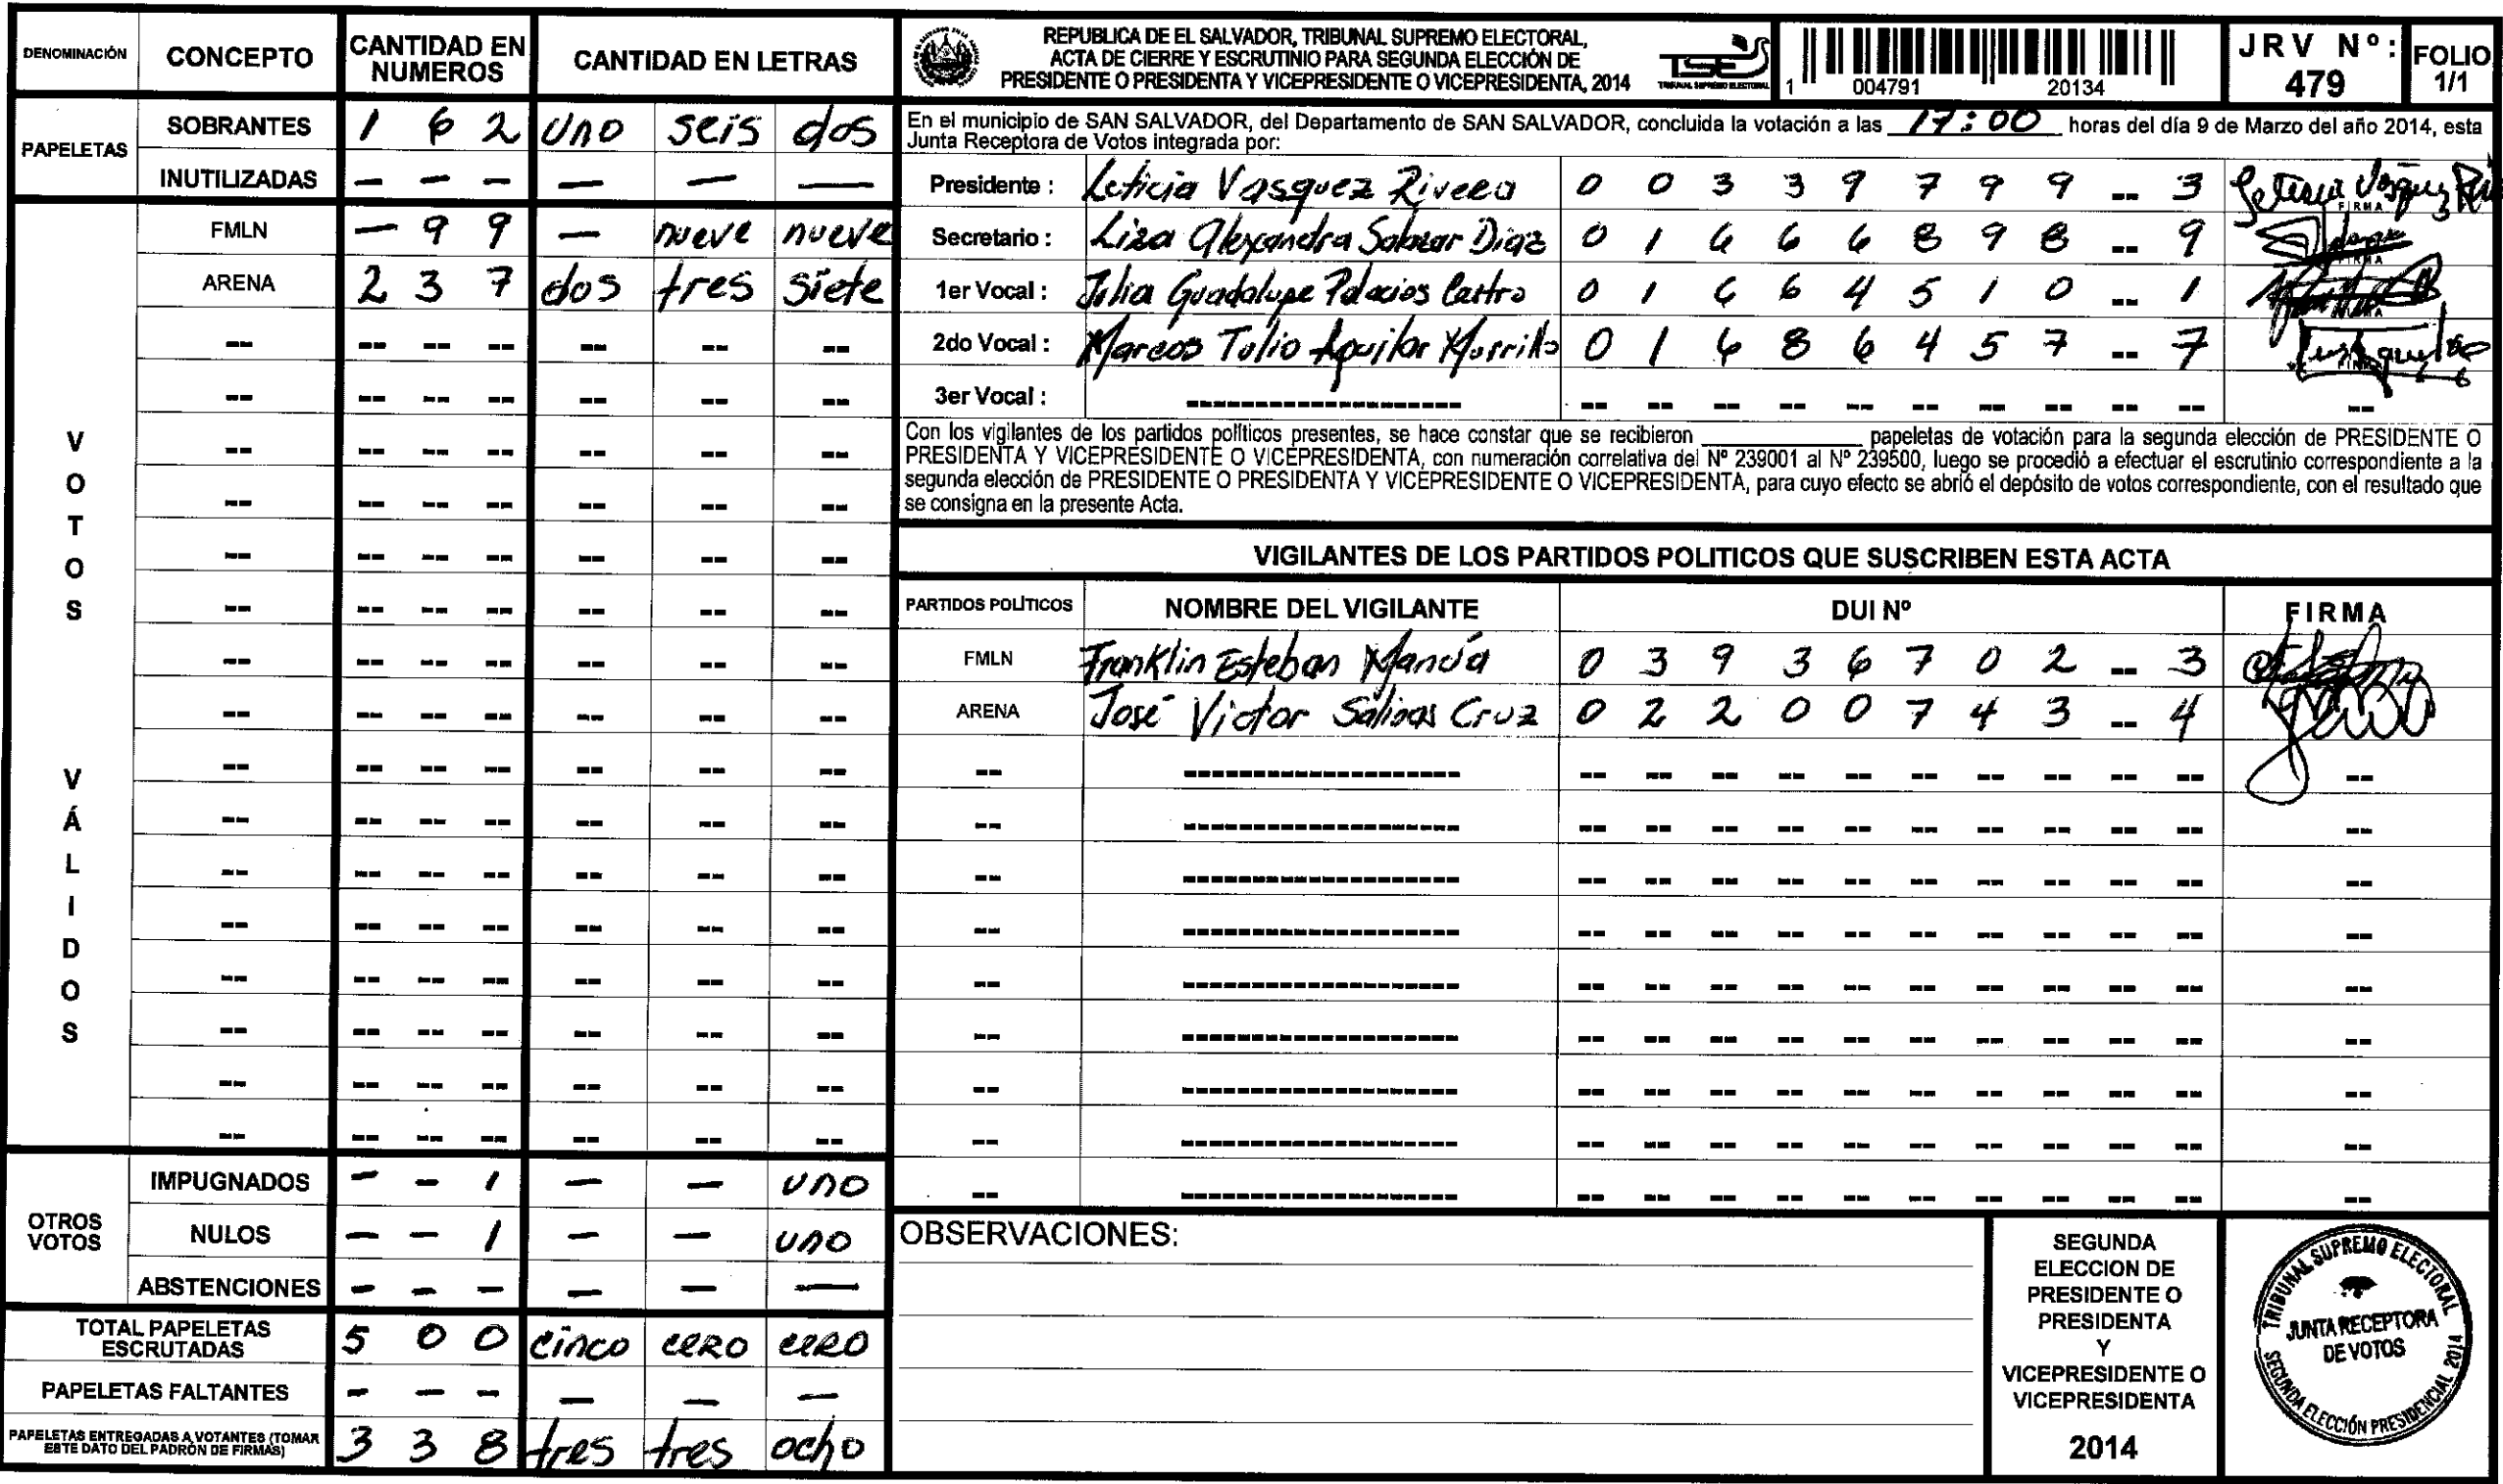 DENOMINACIÓN CONCEPTO CANTIDAD EN NUMEROS CANTIDAD EN LETRAS
PAPELETAS
SOBRANTES 1 6 2 uno seis dos
INUTILIZADAS - - - - - -
VOTOS VÁLIDOS
FMLN - 9 9 - nueve nueve
ARENA 2 3 7 dos tres siete
OTROS VOTOS
IMPUGNADOS - - 1 - - uno
NULOS - - 1 - - uno
ABSTENCIONES - - - - - -
TOTAL PAPELETAS ESCRUTADAS 5 0 0 cinco cero cero
PAPELETAS FALTANTES - - - - - -
PAPELETAS ENTREGADAS A VOTANTES (TOMAR ESTE DATO DEL PADRÓN DE FIRMAS) 3 3 8 tres tres ocho
REPUBLICA DE EL SALVADOR, TRIBUNAL SUPREMO ELECTORAL,
ACTA DE CIERRE Y ESCRUTINIO PARA SEGUNDA ELECCIÓN DE
PRESIDENTE O PRESIDENTA Y VICEPRESIDENTE O VICEPRESIDENTA, 2014
TSE
TRIBUNAL SUPREMO ELECTORAL
1 004791 20134
JRV Nº: 479
FOLIO 1/1
En el municipio de SAN SALVADOR, del Departamento de SAN SALVADOR, concluida la votación a las 17:00 horas del día 9 de Marzo del año 2014, esta
Junta Receptora de Votos integrada por:
Presidente : Leticia Vasquez Rivera 0 0 3 3 9 7 9 9 -- 3 FIRMA
Secretario : Liza Alexandra Salazar Diaz 0 1 6 6 6 8 9 8 -- 9 FIRMA
1er Vocal : Julia Guadalupe Palacios Castro 0 1 6 6 4 5 1 0 -- 1 FIRMA
2do Vocal : Marcos Tulio Aguilar Murrillo 0 1 6 8 6 4 5 7 -- 7 FIRMA
3er Vocal :
Con los vigilantes de los partidos políticos presentes, se hace constar que se recibieron ________ papeletas de votación para la segunda elección de PRESIDENTE O
PRESIDENTA Y VICEPRESIDENTE O VICEPRESIDENTA, con numeración correlativa del Nº 239001 al Nº 239500, luego se procedió a efectuar el escrutinio correspondiente a la
segunda elección de PRESIDENTE O PRESIDENTA Y VICEPRESIDENTE O VICEPRESIDENTA, para cuyo efecto se abrió el depósito de votos correspondiente, con el resultado que
se consigna en la presente Acta.
VIGILANTES DE LOS PARTIDOS POLITICOS QUE SUSCRIBEN ESTA ACTA
PARTIDOS POLÍTICOS NOMBRE DEL VIGILANTE DUI Nº FIRMA
FMLN Franklin Esteban Mancía 0 3 9 3 6 7 0 2 -- 3
ARENA José Victor Salinas Cruz 0 2 2 0 0 7 4 3 -- 4
OBSERVACIONES:
SEGUNDA
ELECCION DE
PRESIDENTE O
PRESIDENTA
Y
VICEPRESIDENTE O
VICEPRESIDENTA
2014
TRIBUNAL SUPREMO ELECTORAL
JUNTA RECEPTORA
DE VOTOS
SEGUNDA ELECCIÓN PRESIDENCIAL 2014